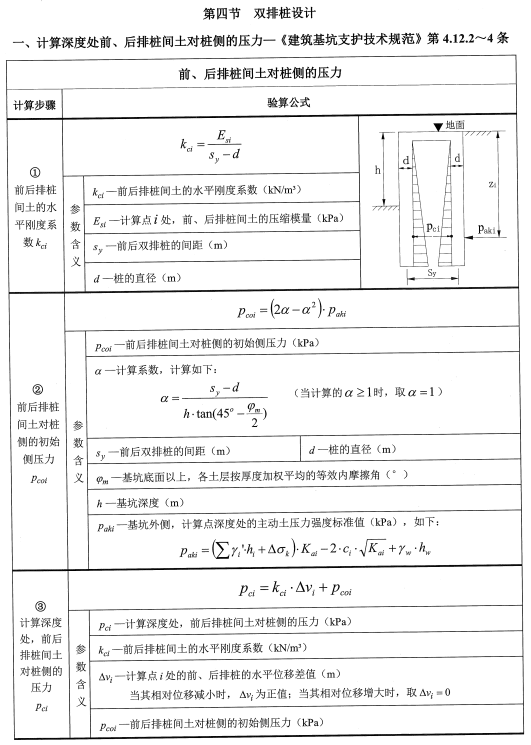 第四节 双排桩设计
一、计算深度处前、后排桩间土对桩侧的压力—《建筑基坑支护技术规范》第 4.12.2～4 条
前、后排桩间土对桩侧的压力
计算步骤
验算公式
①
前后排桩
间土的水
平刚度系
数 k_ci
k_ci = E_si / (s_y − d)
参
数
含
义
k_ci —前后排桩间土的水平刚度系数（kN/m³）
E_si —计算点 i 处，前、后排桩间土的压缩模量（kPa）
s_y —前后双排桩的间距（m）
d —桩的直径（m）
地面
h
d
d
z_i
p_ci
p_aki
s_y
②
前后排桩
间土对桩
侧的初始
侧压力
p_coi
p_coi = (2α − α²)· p_aki
参
数
含
义
p_coi —前后排桩间土对桩侧的初始侧压力（kPa）
α —计算系数，计算如下：
α = (s_y − d) / (h·tan(45° − φ_m / 2))
（当计算的 α ≥1时，取 α =1）
s_y —前后双排桩的间距（m）
d —桩的直径（m）
φ_m —基坑底面以上，各土层按厚度加权平均的等效内摩擦角（°）
h —基坑深度（m）
p_aki —基坑外侧，计算点深度处的主动土压力强度标准值（kPa），如下：
p_aki = (∑γ_i'·h_i + Δσ_k)· K_ai − 2·c_i·√K_ai + γ_w·h_w
③
计算深度
处，前后
排桩间土
对桩侧的
压力
p_ci
p_ci = k_ci · Δv_i + p_coi
参
数
含
义
p_ci —计算深度处，前后排桩间土对桩侧的压力（kPa）
k_ci —前后排桩间土的水平刚度系数（kN/m³）
Δv_i —计算点 i 处的前、后排桩的水平位移差值（m）
当其相对位移减小时，Δv_i 为正值；当其相对位移增大时，取 Δv_i = 0
p_coi —前后排桩间土对桩侧的初始侧压力（kPa）